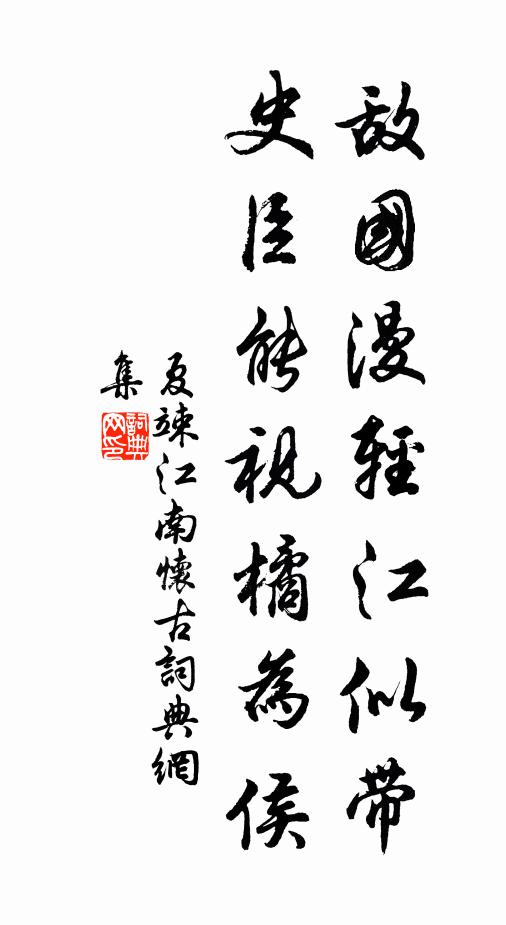 敌國漫輕江似帶
史臣能視橘為侯
夏竦江南懷古詞典網
集
詞典網印